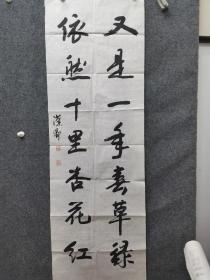 又是一年春草绿
依然十里杏花红